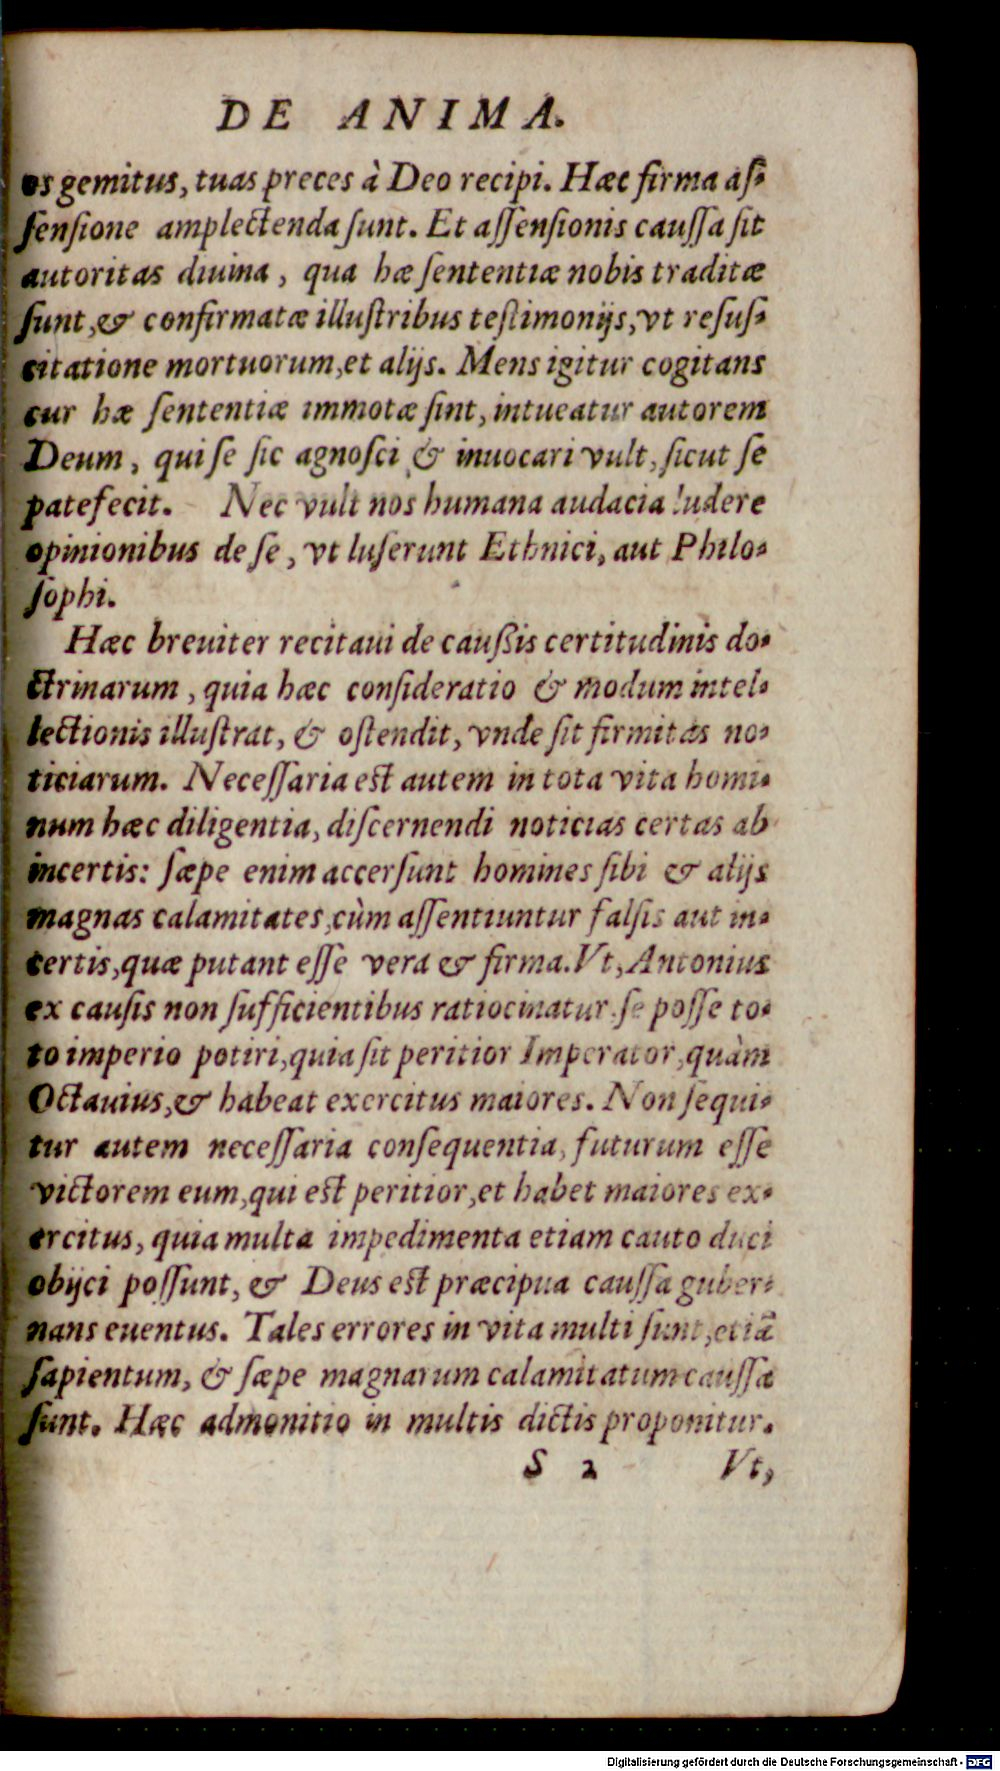 DE ANIMA.
os gemitus, tuas preces à Deo recipi. Hæc firma aſ-
ſenſione amplectenda ſunt. Et aſſenſionis cauſſa ſit
autoritas diuina, qua hæ ſententiæ nobis traditæ
ſunt, & confirmatæ illuſtribus teſtimonijs, vt reſuſ-
citatione mortuorum, et alijs. Mens igitur cogitans
cur hæ ſententiæ immotæ ſint, intueatur autorem
Deum, qui ſe ſic agnoſci & inuocari vult, ſicut ſe
patefecit. Nec vult nos humana audacia ludere
opinionibus de ſe, vt luſerunt Ethnici, aut Philo-
ſophi.
Hæc breuiter recitaui de caußis certitudinis do-
ctrinarum, quia hæc conſideratio & modum intel-
lectionis illuſtrat, & oſtendit, vnde ſit firmitas no-
ticiarum. Neceſſaria eſt autem in tota vita homi-
num hæc diligentia, diſcernendi noticias certas ab
incertis: ſæpe enim accerſunt homines ſibi & alijs
magnas calamitates, cùm aſſentiuntur falſis aut in-
certis, quæ putant eſſe vera & firma. Vt, Antonius
ex cauſis non ſufficientibus ratiocinatur ſe poſſe to-
to imperio potiri, quia ſit peritior Imperator, quàm
Octauius, & habeat exercitus maiores. Non ſequi-
tur autem neceſſaria conſequentia, futurum eſſe
victorem eum, qui eſt peritior, et habet maiores ex-
ercitus, quia multa impedimenta etiam cauto duci
obijci poſſunt, & Deus eſt præcipua cauſſa guber-
nans euentus. Tales errores in vita multi ſunt, etiã
ſapientum, & ſæpe magnarum calamitatum cauſſa
ſunt. Hæc admonitio in multis dictis proponitur.
S 2 Vt,
Digitalisierung gefördert durch die Deutsche Forschungsgemeinschaft - DFG